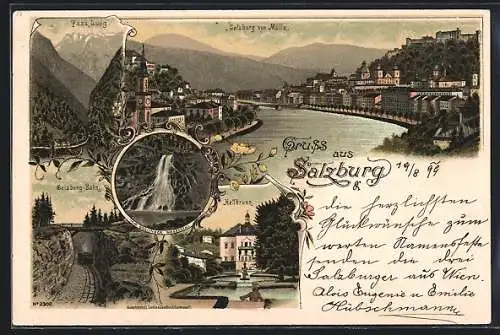 Pass Lueg
Salzburg von Mülln.
Gruss aus
Salzburg
19/8 99
& die herzlichsten
Glückwünsche zum
werten Namensfeste
senden die drei
Salzburger aus Wien.
Alois Eugenie u Emilie
Hübschmann
Gaisberg-Bahn.
Hellbrunn.
No 2300